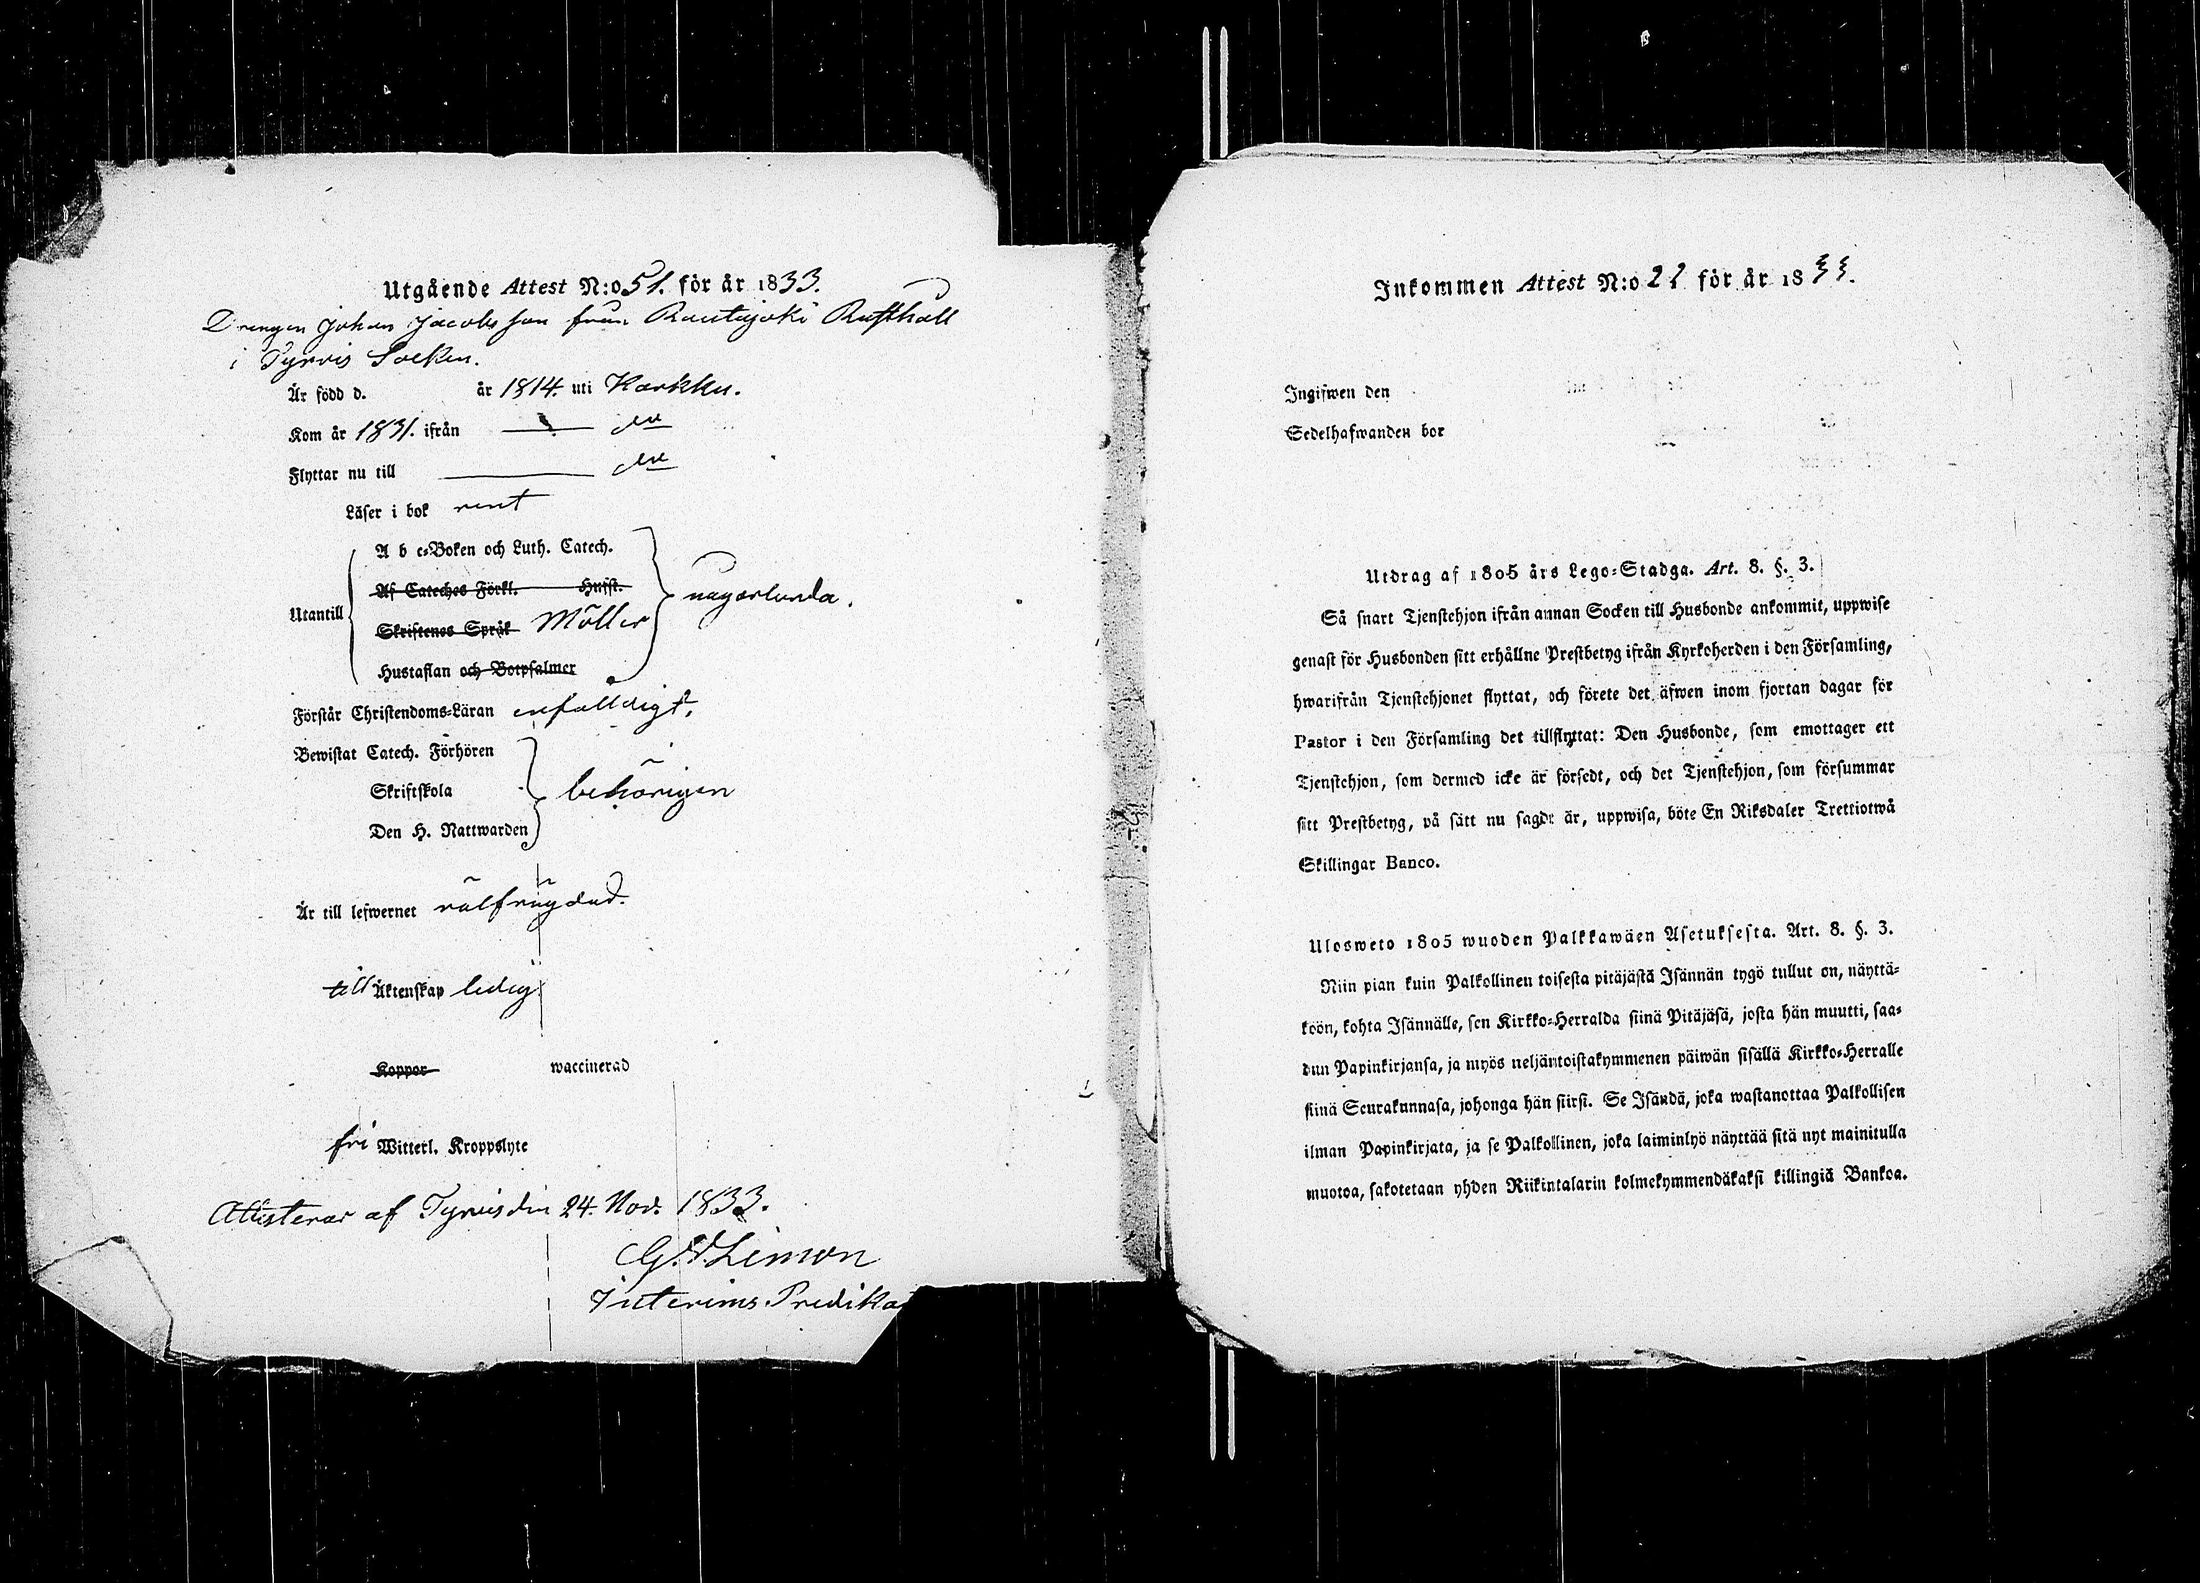 Utgående Attest N:o 51. för år 1833.
Drengen Johan Jacobsson från Rautajoki Rusthåll
i Tyrvis Socken.
Är född d. år 1814. uti Karkku.
Kom år 1831. ifrån
Flyttar nu till
Läser i bok rent
A b c-Boken och Luth. Catech.
Af Cateches Förkl. Hufst.
Utantill
någorlunda.
Skriftenes Språk Möller
Hustaflan och Botpsalmer
Förstår Christendoms-Läran enfaldigt.
Bewistat Catech. Förhören
Skriftskola
behörigen
Den H. Nattwarden
Är till lefwernet välfrägdad.
till Äktenskap ledig
Koppor waccinerad
fri Witterl. Kroppslyte
Attesterar af Tyrvis den 24. Nov. 1833.
G. Limon
Interims Predika
Inkommen Attest N:o 22 för år 1833.
Ingifwen den
Sedelhafwanden bor
Utdrag af 1805 års Lego-Stadga. Art. 8. §. 3.
Så snart Tjenstehjon ifrån annan Socken till Husbonde ankommit, uppwise
genast för Husbonden sitt erhållne Prestbetyg ifrån Kyrkoherden i den Församling,
hwarifrån Tjenstehjonet flyttat, och förete det äfwen inom fjortan dagar för
Pastor i den Församling det tillflyttat: Den Husbonde, som emottager ett
Tjenstehjon, som dermed icke är försedt, och det Tjenstehjon, som försummar
sitt Prestbetyg, på sätt nu sagdt är, uppwisa, böte En Riksdaler Trettiotwå
Skillingar Banco.
Ulosweto 1805 wuoden Palkkawäen Asetuksesta. Art. 8. §. 3.
Niin pian kuin Palkollinen toisesta pitäjästä Isännän tygö tullut on, näyttä-
köön, kohta Isännälle, sen Kirkko-Herralda siinä Pitäjäsä, josta hän muutti, saa-
dun Papinkirjansa, ja myös neljäntoistakymmenen päiwän sisällä Kirkko-Herralle
siinä Seurakunnasa, johonga hän siirsi. Se Isändä, joka wastanottaa Palkollisen
ilman Papinkirjata, ja se Palkollinen, joka laiminlyö näyttää sitä nyt mainitulla
muotoa, sakotetaan yhden Riikintalarin kolmekymmendäkaksi killingiä Bankoa.